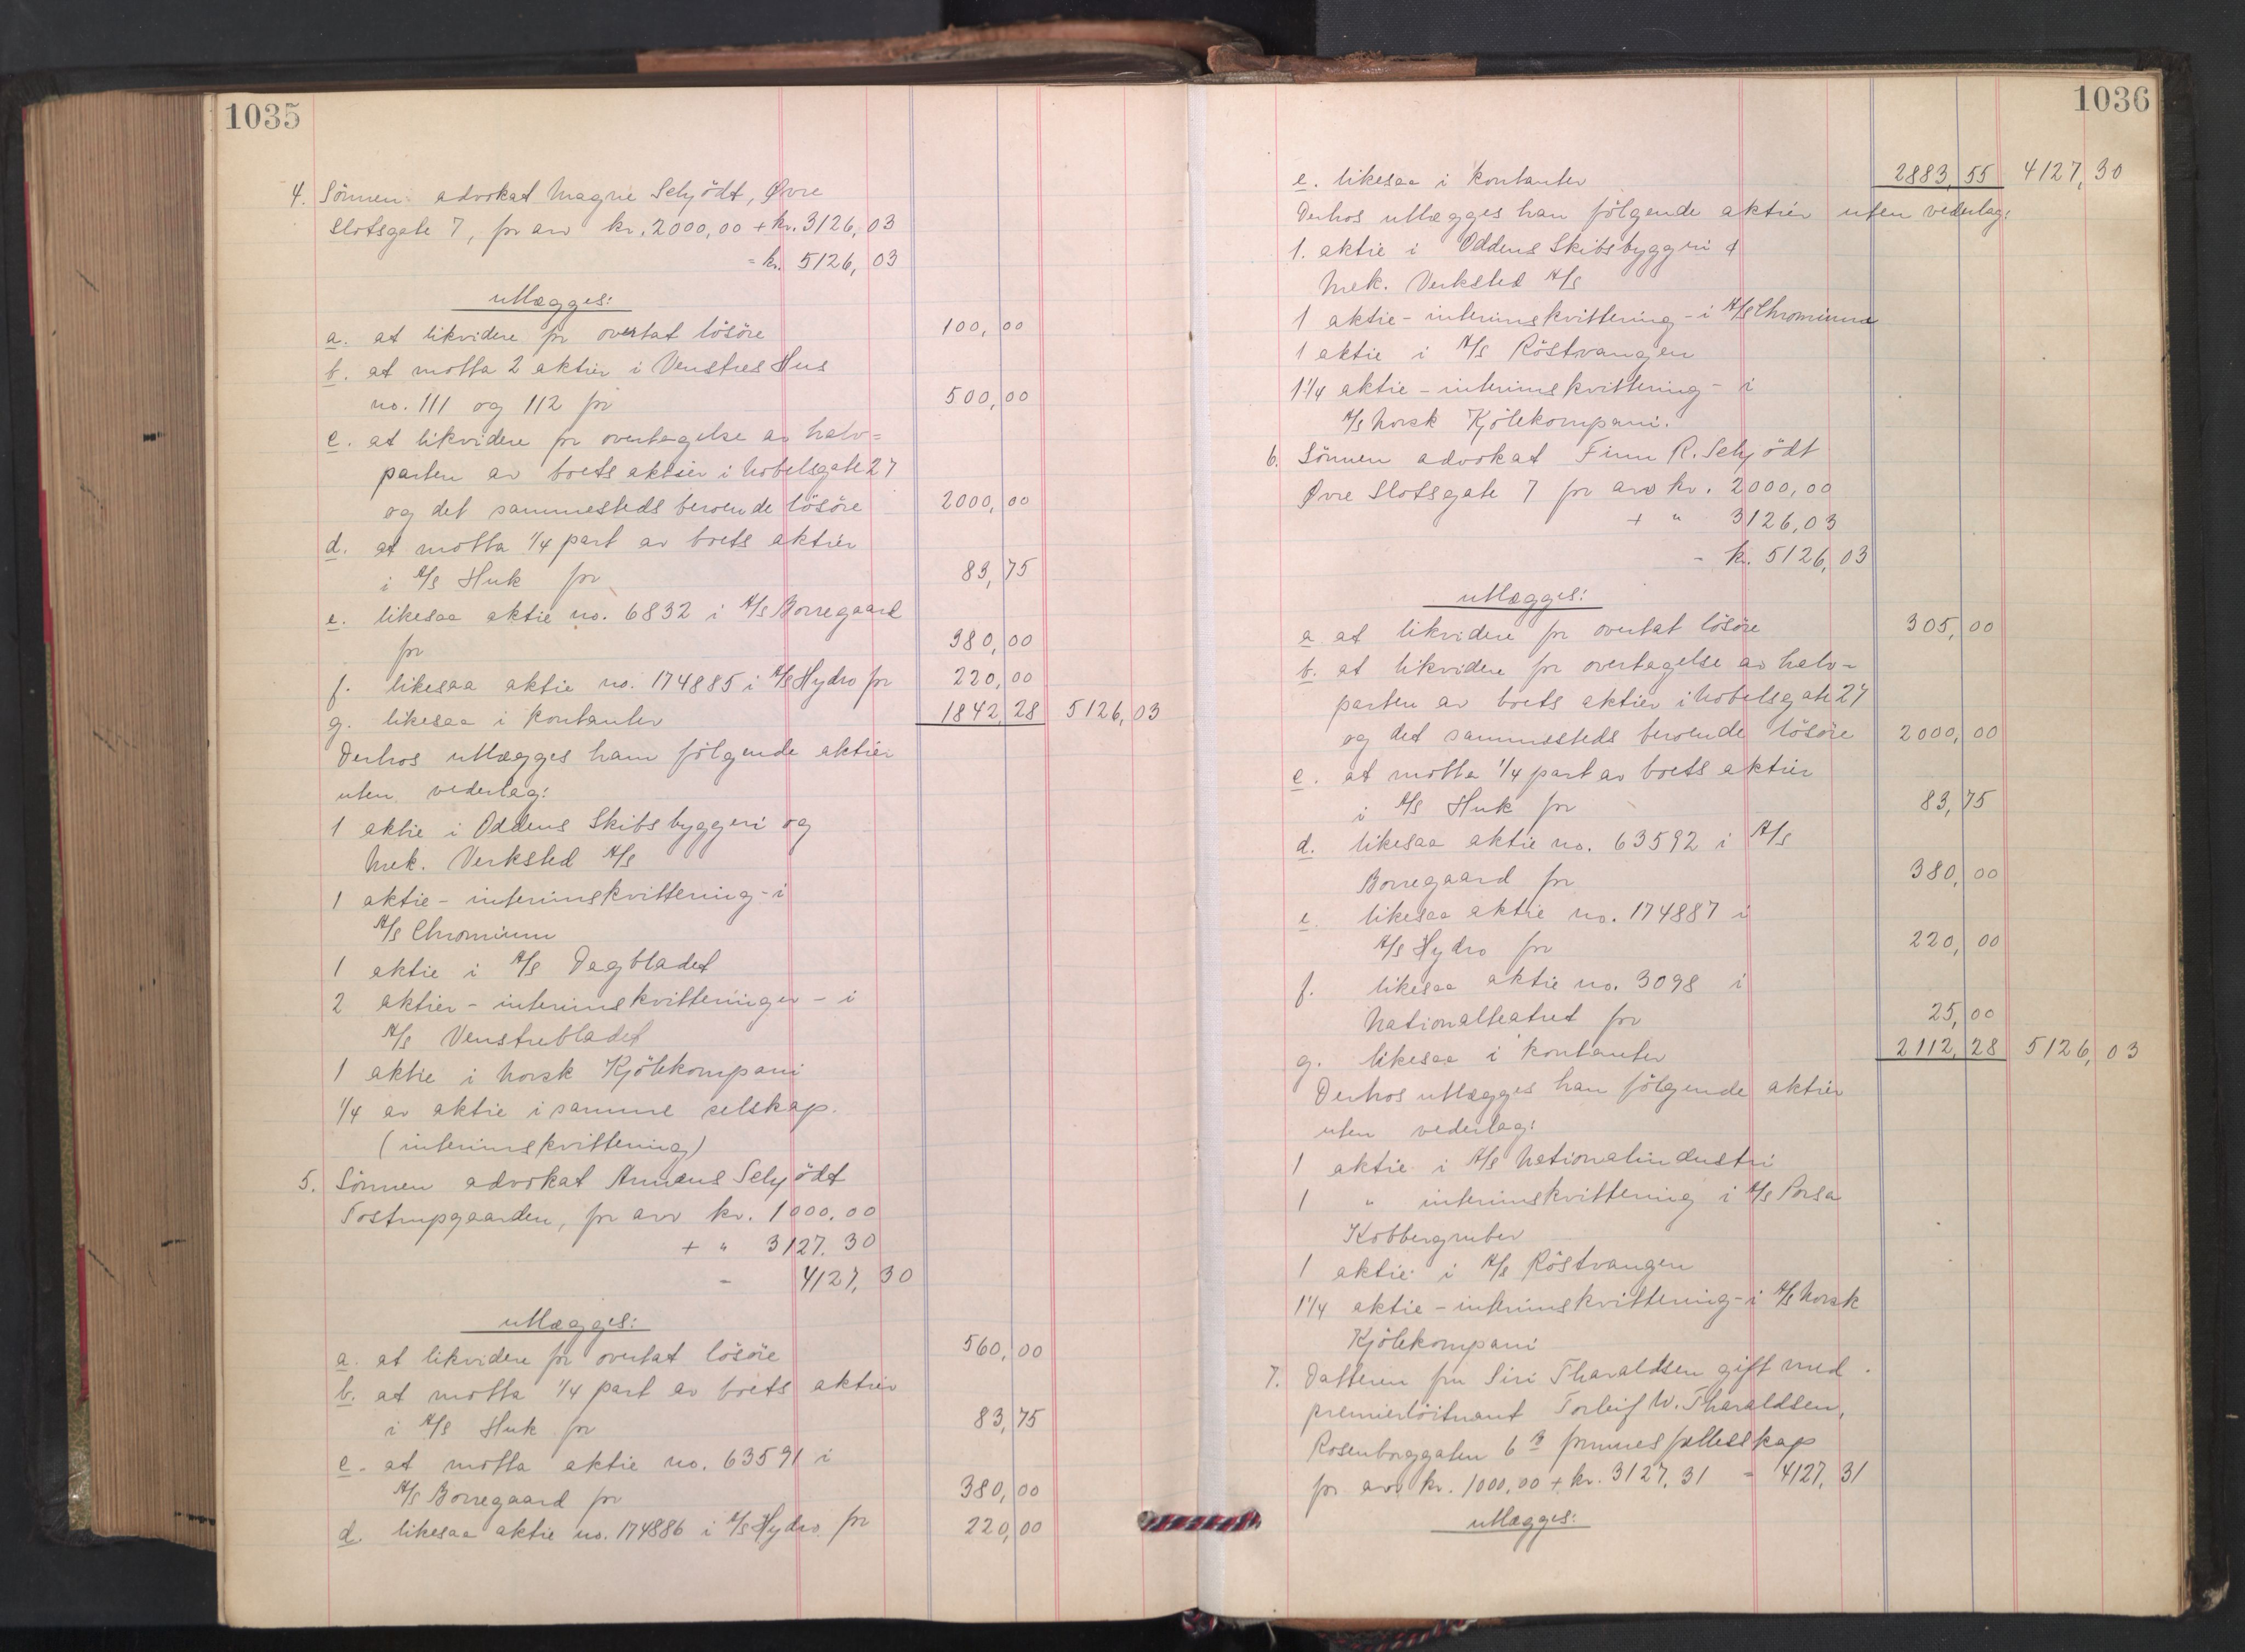 1035
4. Sönnen advokat Magne Schjödt, Øvre
Slotsgate 7, for arv kr. 2000,00 + kr. 3126,03
= kr. 5126,03
utlægges:
a. at likvidere for overtat lösöre 100,00
b. at motta 2 aktier i Venstres Hus
no. 111 og 112 for 500,00
c. at likvidere for overtagelse av halv=
parten av boets aktier i Nobelsgate 27
og det sammesteds beroende lösöre 2000,00
d. at motta 1/4 part av boets aktier
i A/S Huk for 83,75
e. likesaa aktie no. 6832 i A/S Borregaard
for 380,00
f. likesaa aktie no. 174885 i A/S Hydro for 220,00
g. likesaa i kontanter 1842,28 5126,03
Derhos utlægges ham fölgende aktier
uten vederlag:
1 aktie i Oddens Skibsbyggeri og
Mek. Verksted A/S
1 aktie - interimskvittering - i
A/S Chromium
1 aktie i A/S Dagbladet
2 aktier - interimskvitteringer - i
A/S Venstrebladet
1 aktie i Norsk Kjölekompani
1/4 av aktie i samme selskap.
(interimskvittering)
5. Sönnen advokat Annæus Schjödt
Tostrupgaarden, for arv kr. 1000.00
+ " 3127.30
- 4127,30
utlægges:
a. at likvidere for overtat lösöre 560,00
b. at motta 1/4 part av boets aktier
i A/S Huk for 83,75
c. at motta aktie no. 63591 i
A/S Borregaard for 380,00
d. likesaa aktie no. 174886 i A/S Hydro for 220,00
1036
e. likesaa i kontanter 2883,55 4127,30
Derhos utlægges han fölgende aktier uten vederlag:
1. aktie i Oddens Skibsbyggeri &
Mek. Verksted A/S
1 aktie - interimskvittering - i A/S Chromium
1 aktie i A/S Röstvangen
1 1/4 aktie - interimskvittering - i
A/S Norsk Kjölekompani.
6. Sönnen advokat Finn R. Schjödt
Øvre Slotsgate 7 for arv kr. 2000,00
+ " 3126,03
- kr. 5126,03
utlægges:
a at likvidere for overtat lösöre 305,00
b. at likvidere for overtagelse av halv-
parten av boets aktier i Nobelsgate 27
og det sammesteds beroende lösöre 2000,00
c. at motta 1/4 part av boets aktier
i A/S Huk for 83,75
d. likesaa aktie no. 63592 i A/S
Borregaard for 380,00
e. likesaa aktie no. 174887 i
A/S Hydro for 220,00
f. likesaa aktie no. 3098 i
Nationalteatret for 25,00
g. likesaa i kontanter 2112,28 5126,03
Derhos utlægges han fölgende aktier
uten vederlag:
1 aktie i A/S Nationalindustri
1 " interimskvittering i A/S Porsa
Kobbergruber
1 aktie i A/S Röstvangen
1 1/4 aktie - interimskvittering - i A/S Norsk
Kjölekompani
7. Datteren fru Siri Tharaldsen gift med
premierlöitnant Torleif W. Tharaldsen,
Rosenborggaten 6 B formues fællesskap
for arv kr. 1000,00 + kr. 3127,31 = 4127,31
utlægges: